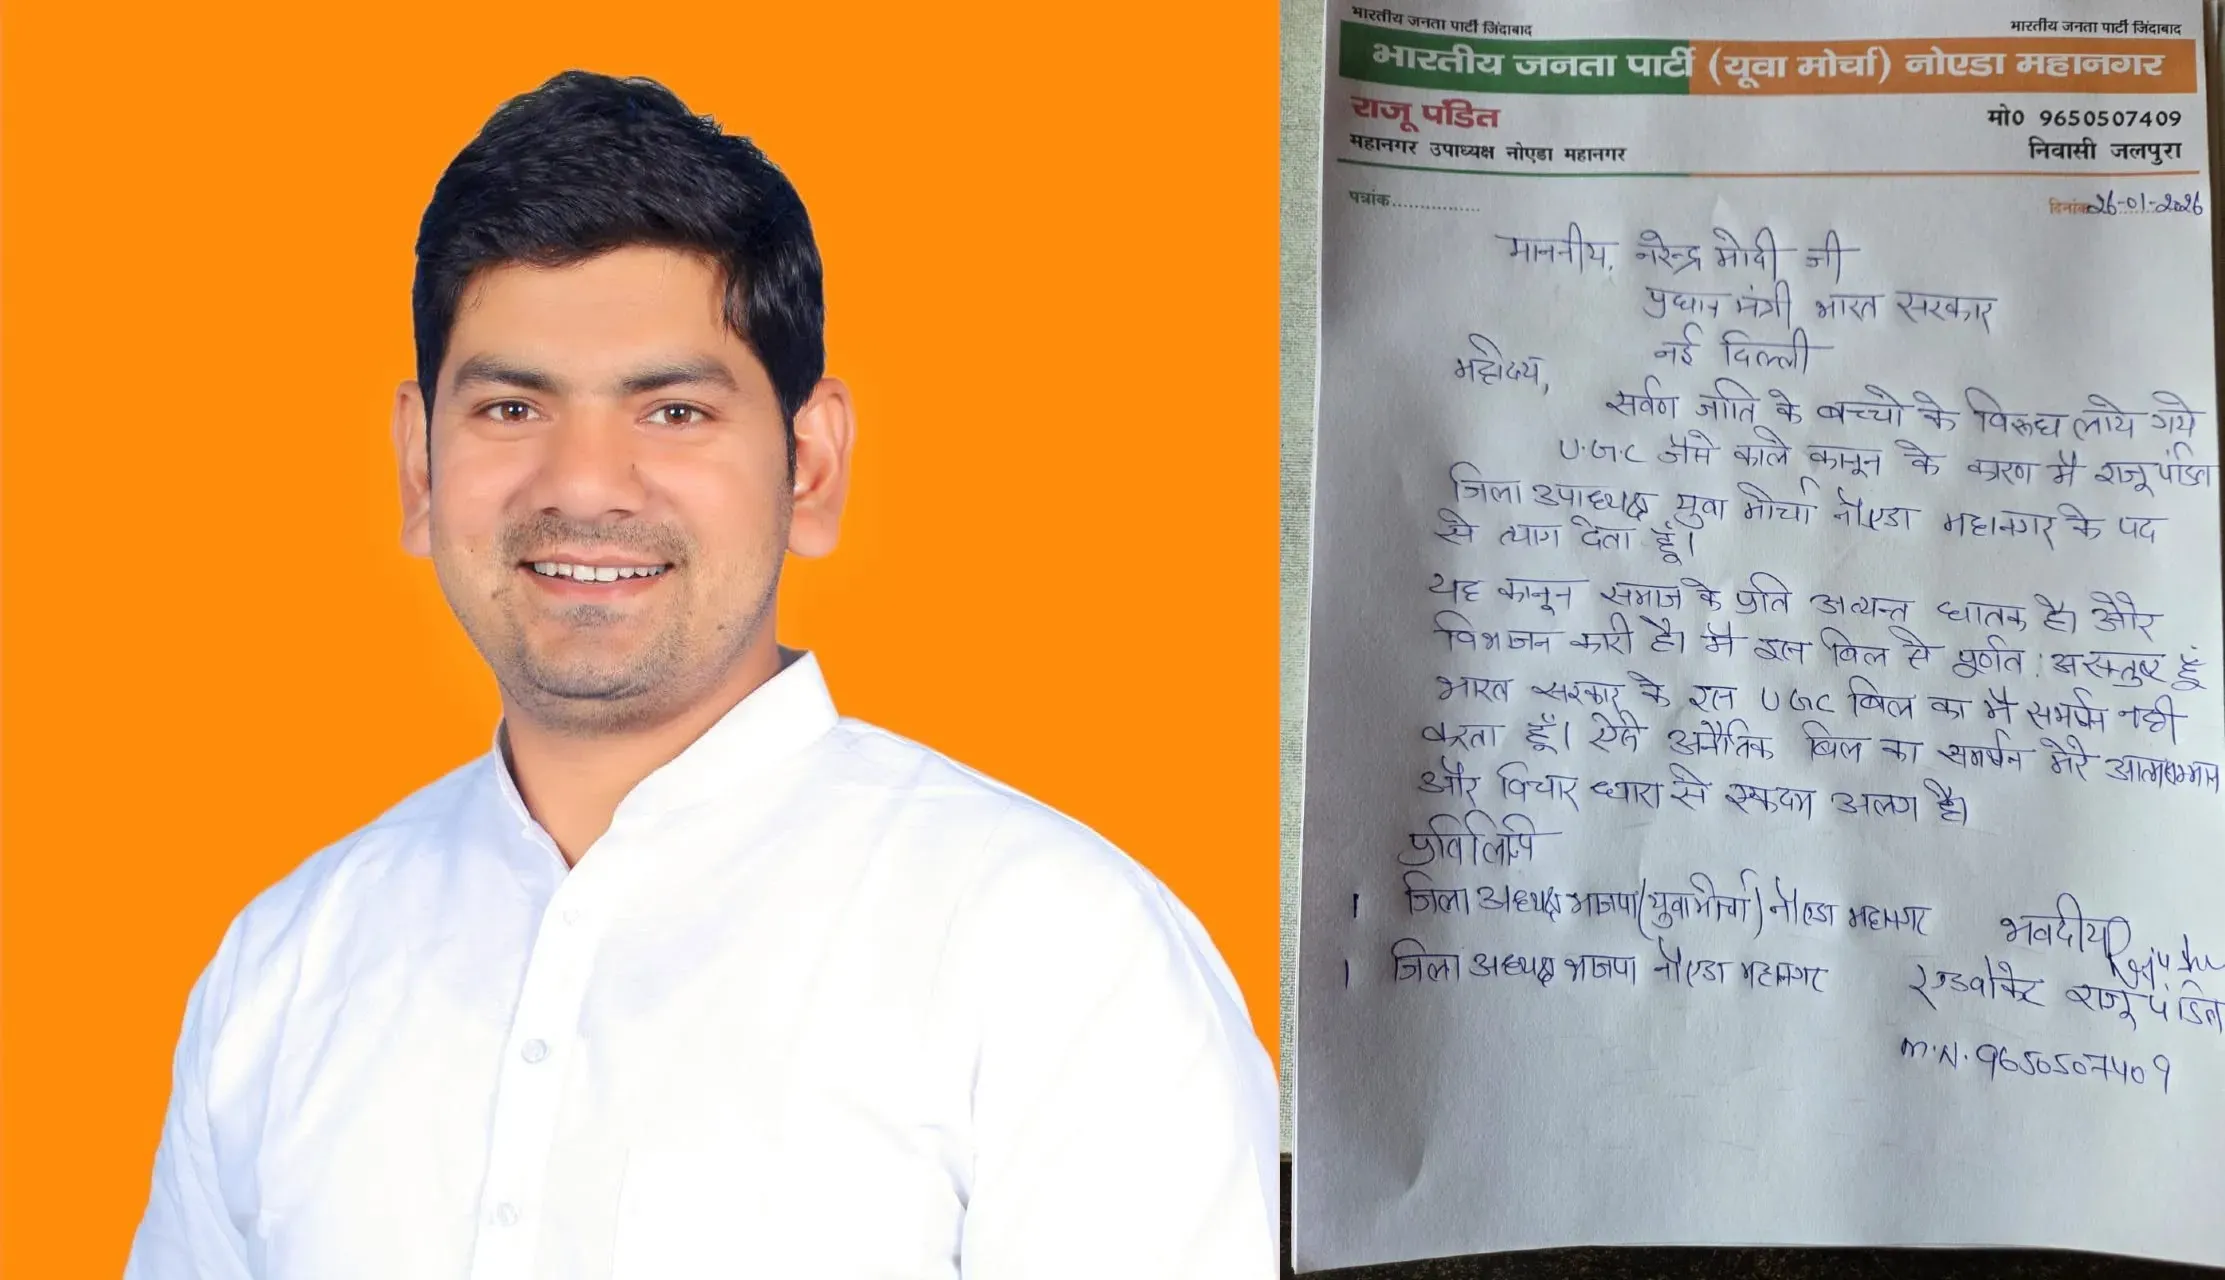 भारतीय जनता पार्टी जिंदाबाद भारतीय जनता पार्टी जिंदाबाद
भारतीय जनता पार्टी (यूवा मोर्चा) नोएडा महानगर
राजू पंडित मो0 9650507409
महानगर उपाध्यक्ष नोएडा महानगर निवासी जलपुरा
पत्रांक............... दिनांक 26-01-2026
माननीय, नरेन्द्र मोदी जी
प्रधान मंत्री भारत सरकार
नई दिल्ली
महोदय,
सर्वण जाति के बच्चो के विरूध लाये गये
U.G.C जैसे काले कानून के कारण मै राजू पंडित
जिला उपाध्यक्ष युवा मोर्चा नौएडा महानगर के पद
से त्याग देता हूँ।
यह कानून समाज के प्रति अत्यन्त घातक है। और
विभाजन कारी है। मै इस बिल से पूर्णत: असन्तुष्ट हूँ
भारत सरकार के इस UGC बिल का मै समर्थन नही
करता हूँ। ऐसे अनैतिक बिल का समर्थन मेरे आत्मसम्मान
और विचार धारा से एकदम अलग है।
प्रतिलिपि
1 जिला अध्यक्ष भाजपा (युवा मोर्चा) नौएडा महानगर
भवदीय Raju
1 जिला अध्यक्ष भाजपा नौएडा महानगर
एडवोकेट राजू पंडित
M.N. 9650507409